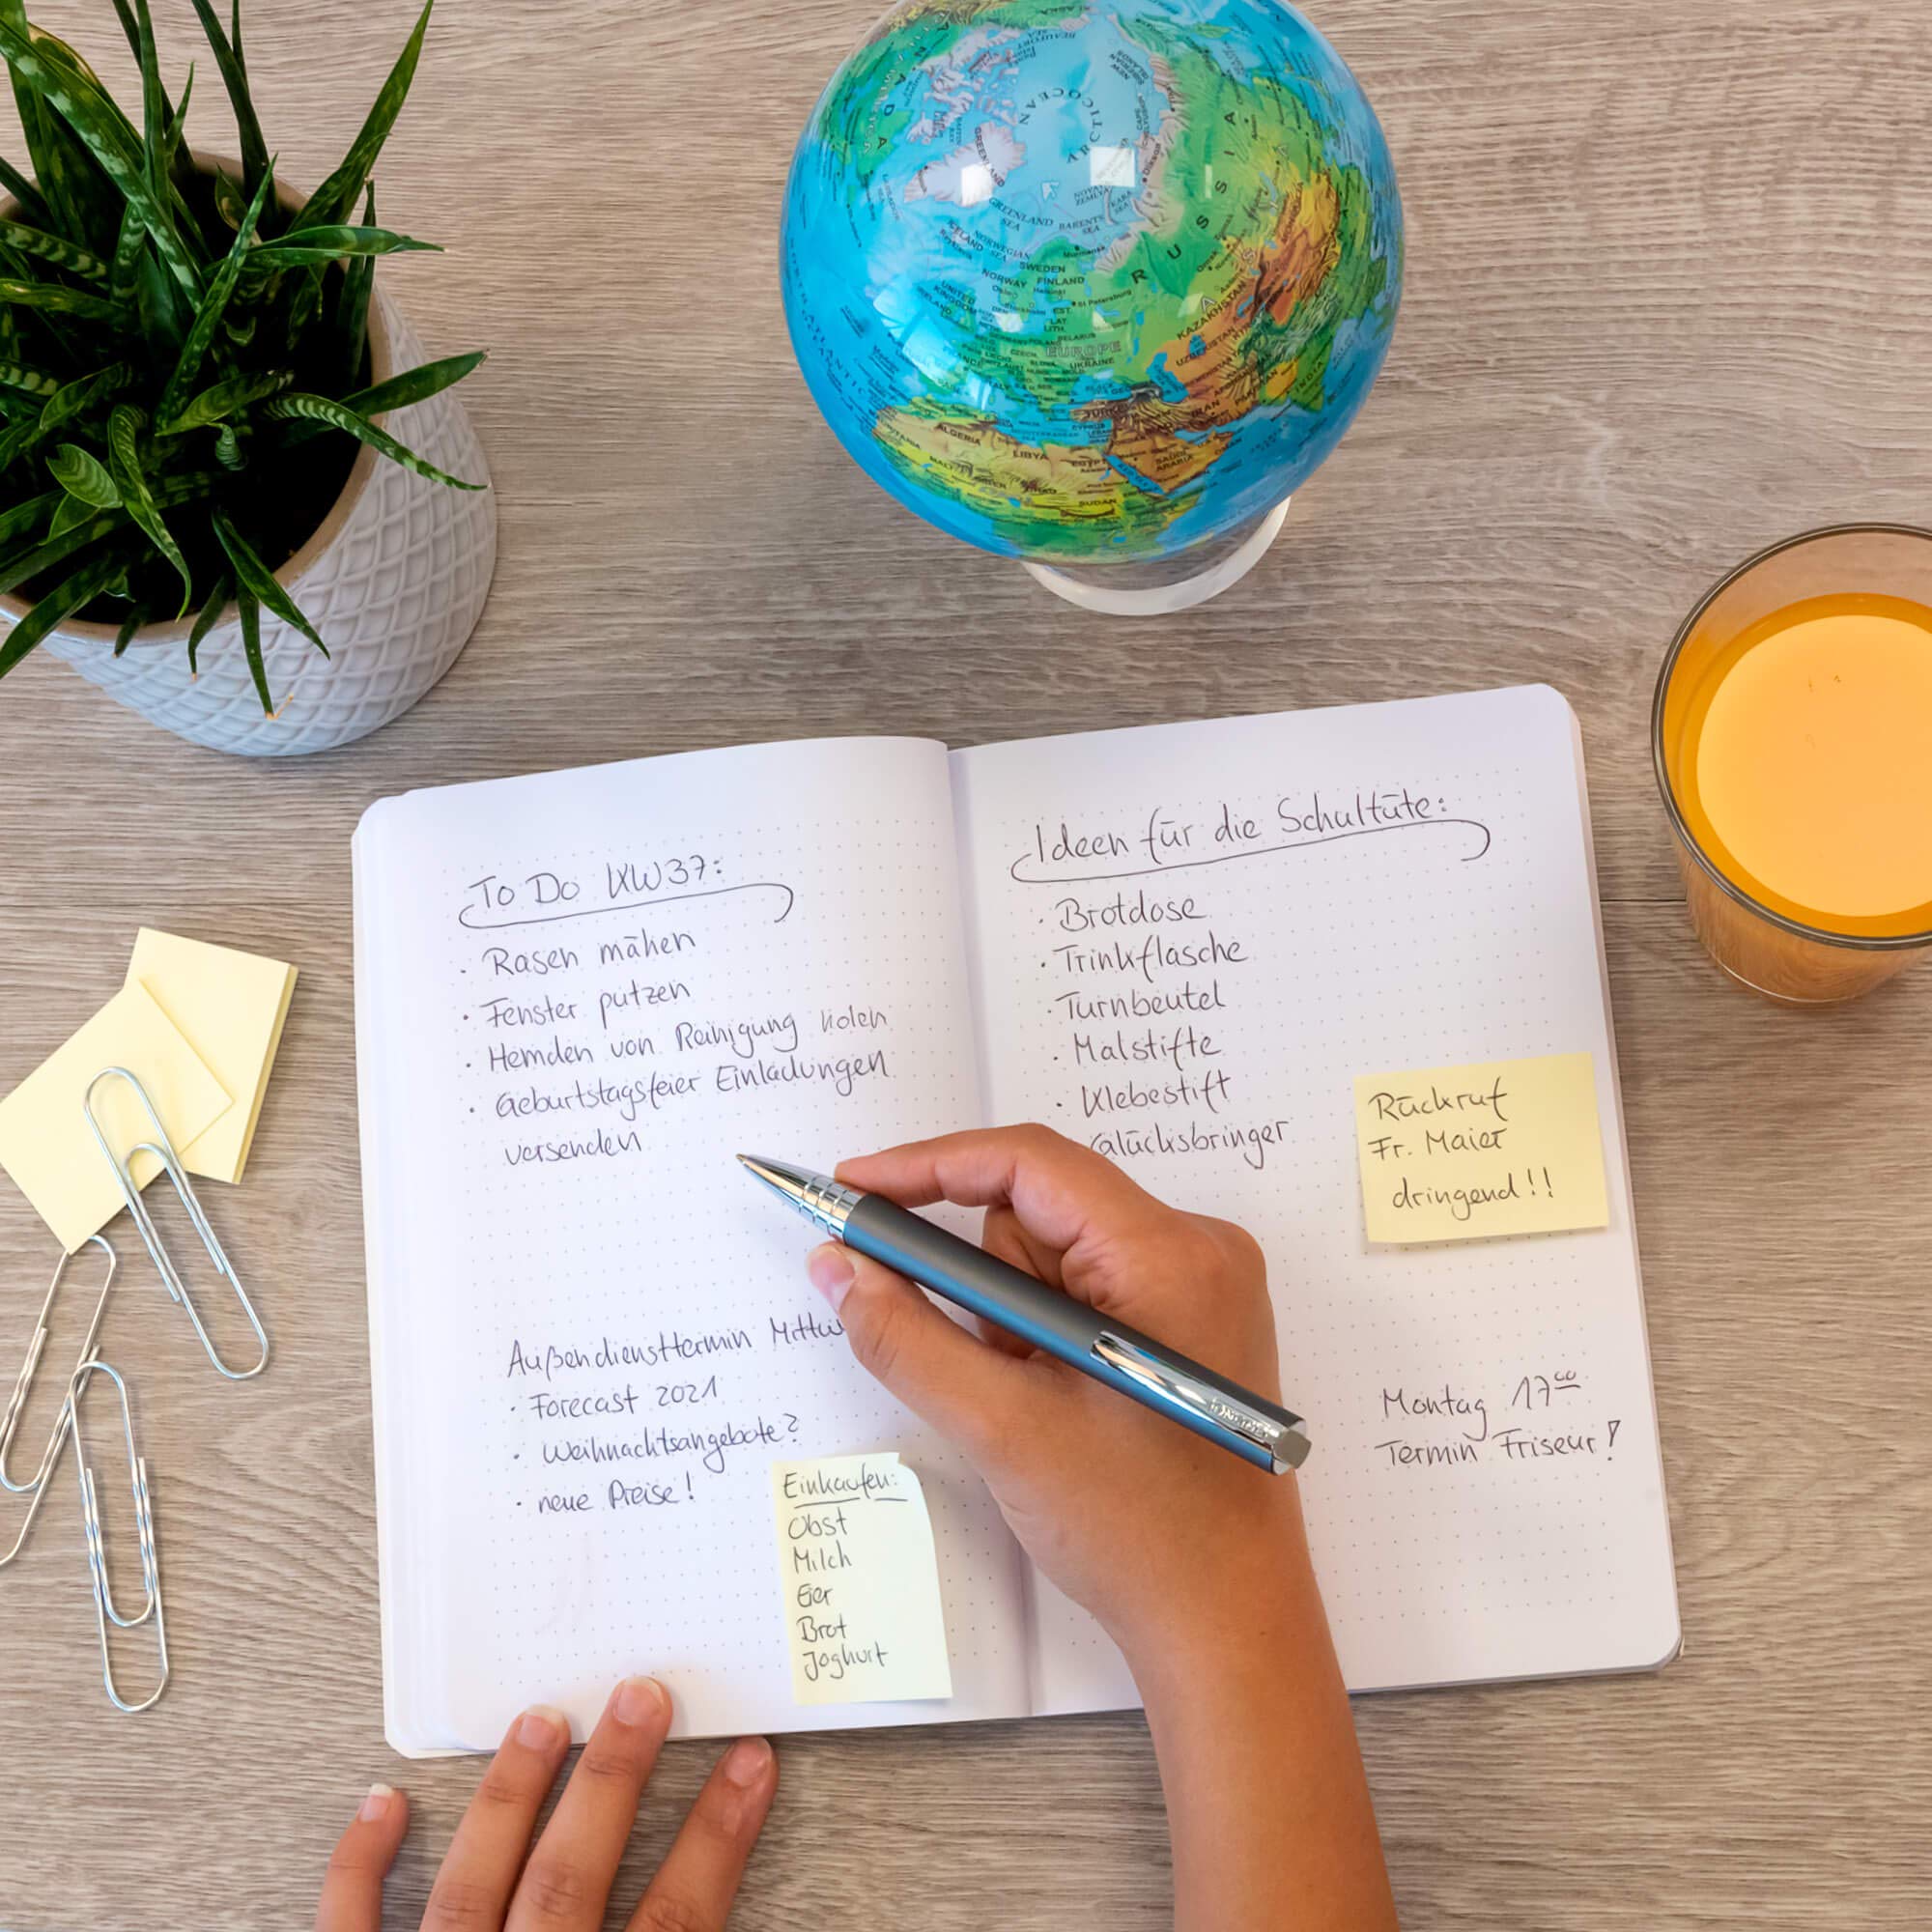 To Do KW37:
· Rasen mähen
· Fenster putzen
· Hemden von Reinigung holen
· Geburtstagsfeier Einladungen
versenden
Außendiensttermin Mittw
· Forecast 2021
· Weihnachtsangebote?
· neue Preise!
Einkaufen:
Obst
Milch
Eier
Brot
Joghurt
Ideen für die Schultüte:
· Brotdose
· Trinkflasche
· Turnbeutel
· Malstifte
· Klebestift
Glücksbringer
Rückruf
Fr. Maier
dringend!!
Montag 17⁰⁰
Termin Friseur!
CANADA
BEAUFORT SEA
ARCTIC OCEAN
GREENLAND
GREENLAND SEA
BARENTS SEA
KARA SEA
NORWEGIAN SEA
ICELAND
SWEDEN
NORWAY FINLAND
RUSSIA
UNITED KINGDOM
IRELAND
St Petersburg
EST.
LAT.
LITH.
BELARUS
POLAND
EUROPE
UKRAINE
KAZAKHSTAN
UZBEKISTAN
TURKEY
IRAN
INDIA
ALGERIA
LIBYA
EGYPT
SAUDI ARABIA
SUDAN